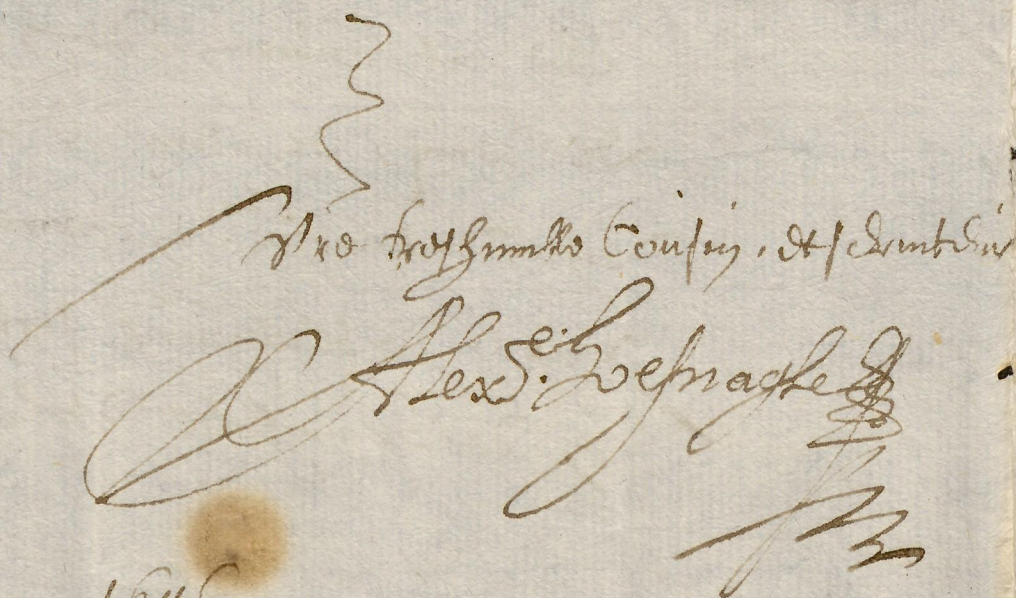 Vre treshumble Cousin, et serviteur
Alexdre. Hoefnaghel